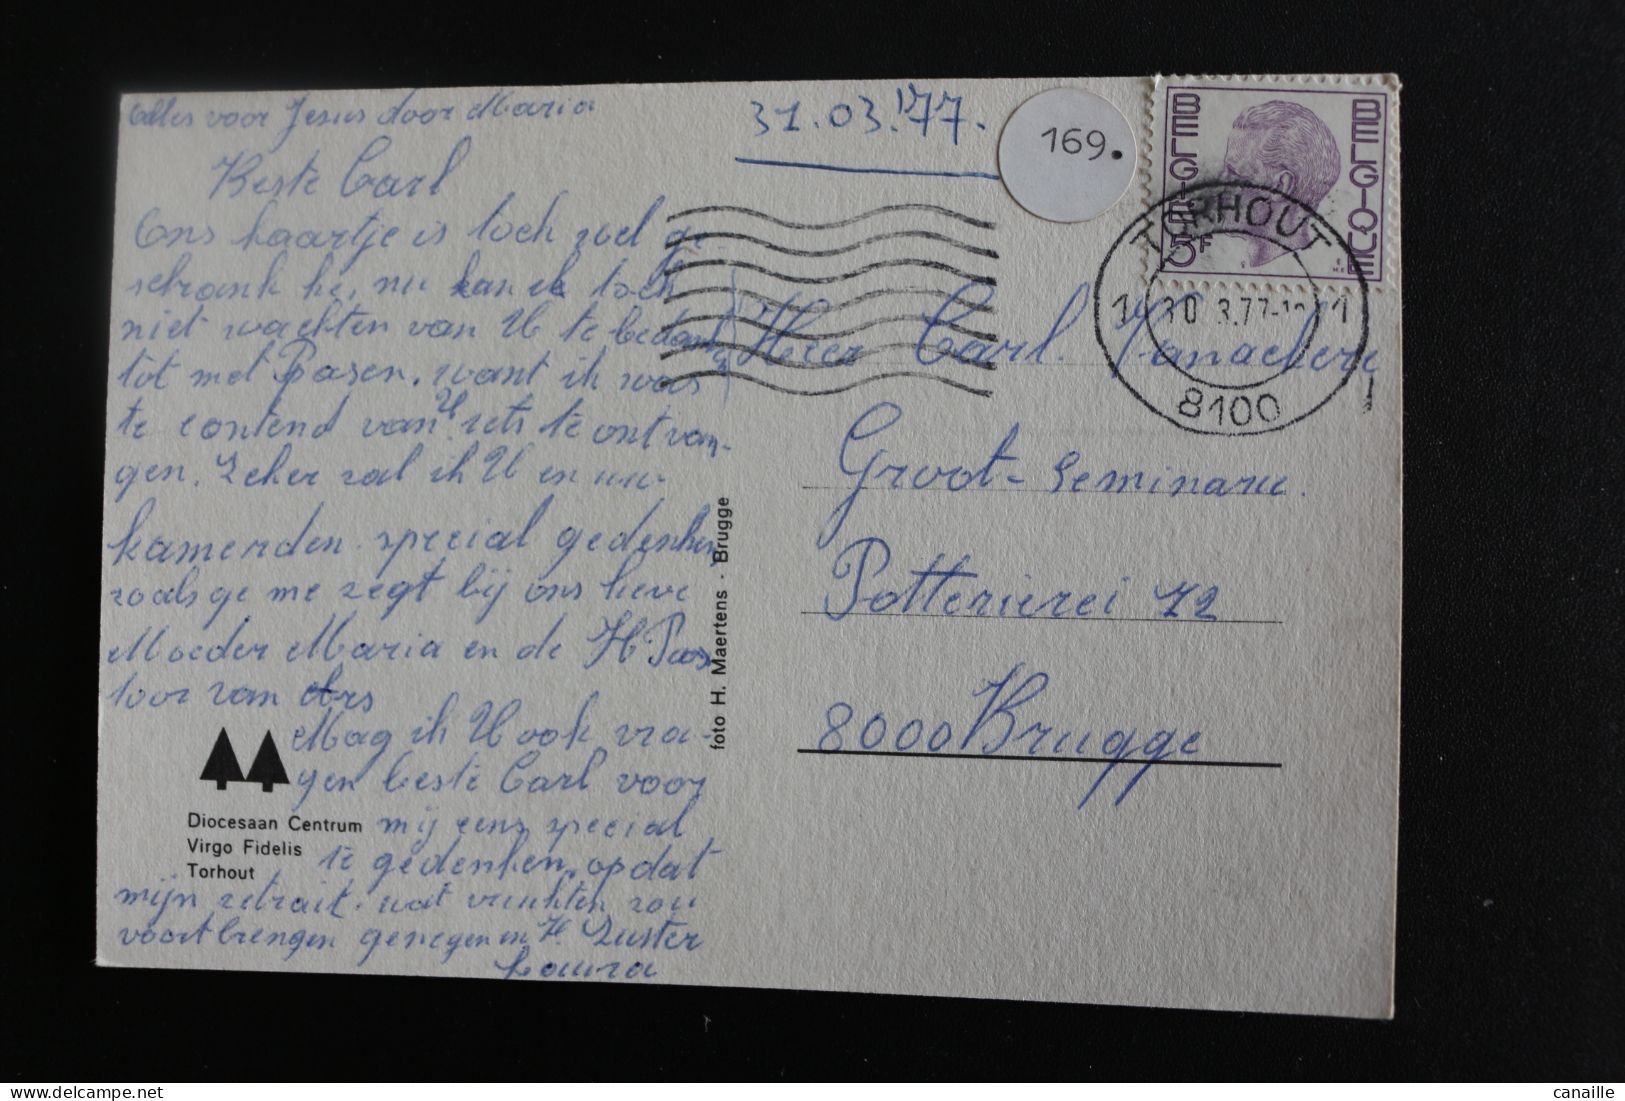 Alles voor Jesus door Maria
31.03.'77.
169.
BELGIE
BELGIQUE
5F
TORHOUT
30.3.77
8100
Beste Carl
Ons kaartje is toch wel ge-
schonk he, nu kan ik toch
niet wachten van U te bedank
tot met Pasen. want ik was
te contend van U iets te ontvan-
gen. Zeker zal ik U en uw
kameraden special gedenken
zoals ge me zegt bij ons lieve
Moeder Maria en de H Pas
toor van Ars
Mag ik U ook vra-
gen beste Carl voor
mij eens special
te gedenken, opdat
mijn retrait. wat vruchten zou
voortbrengen genegen in H. Zuster
Laura
Diocesaan Centrum
Virgo Fidelis
Torhout
foto H. Maertens - Brugge
Heer Carl. Vanackere
Groot-Seminarie.
Potterierei 72
8000 Brugge
canaille